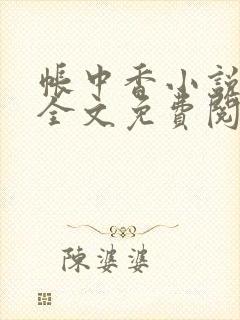 帳中香小說
全文免費閱
陳婆婆